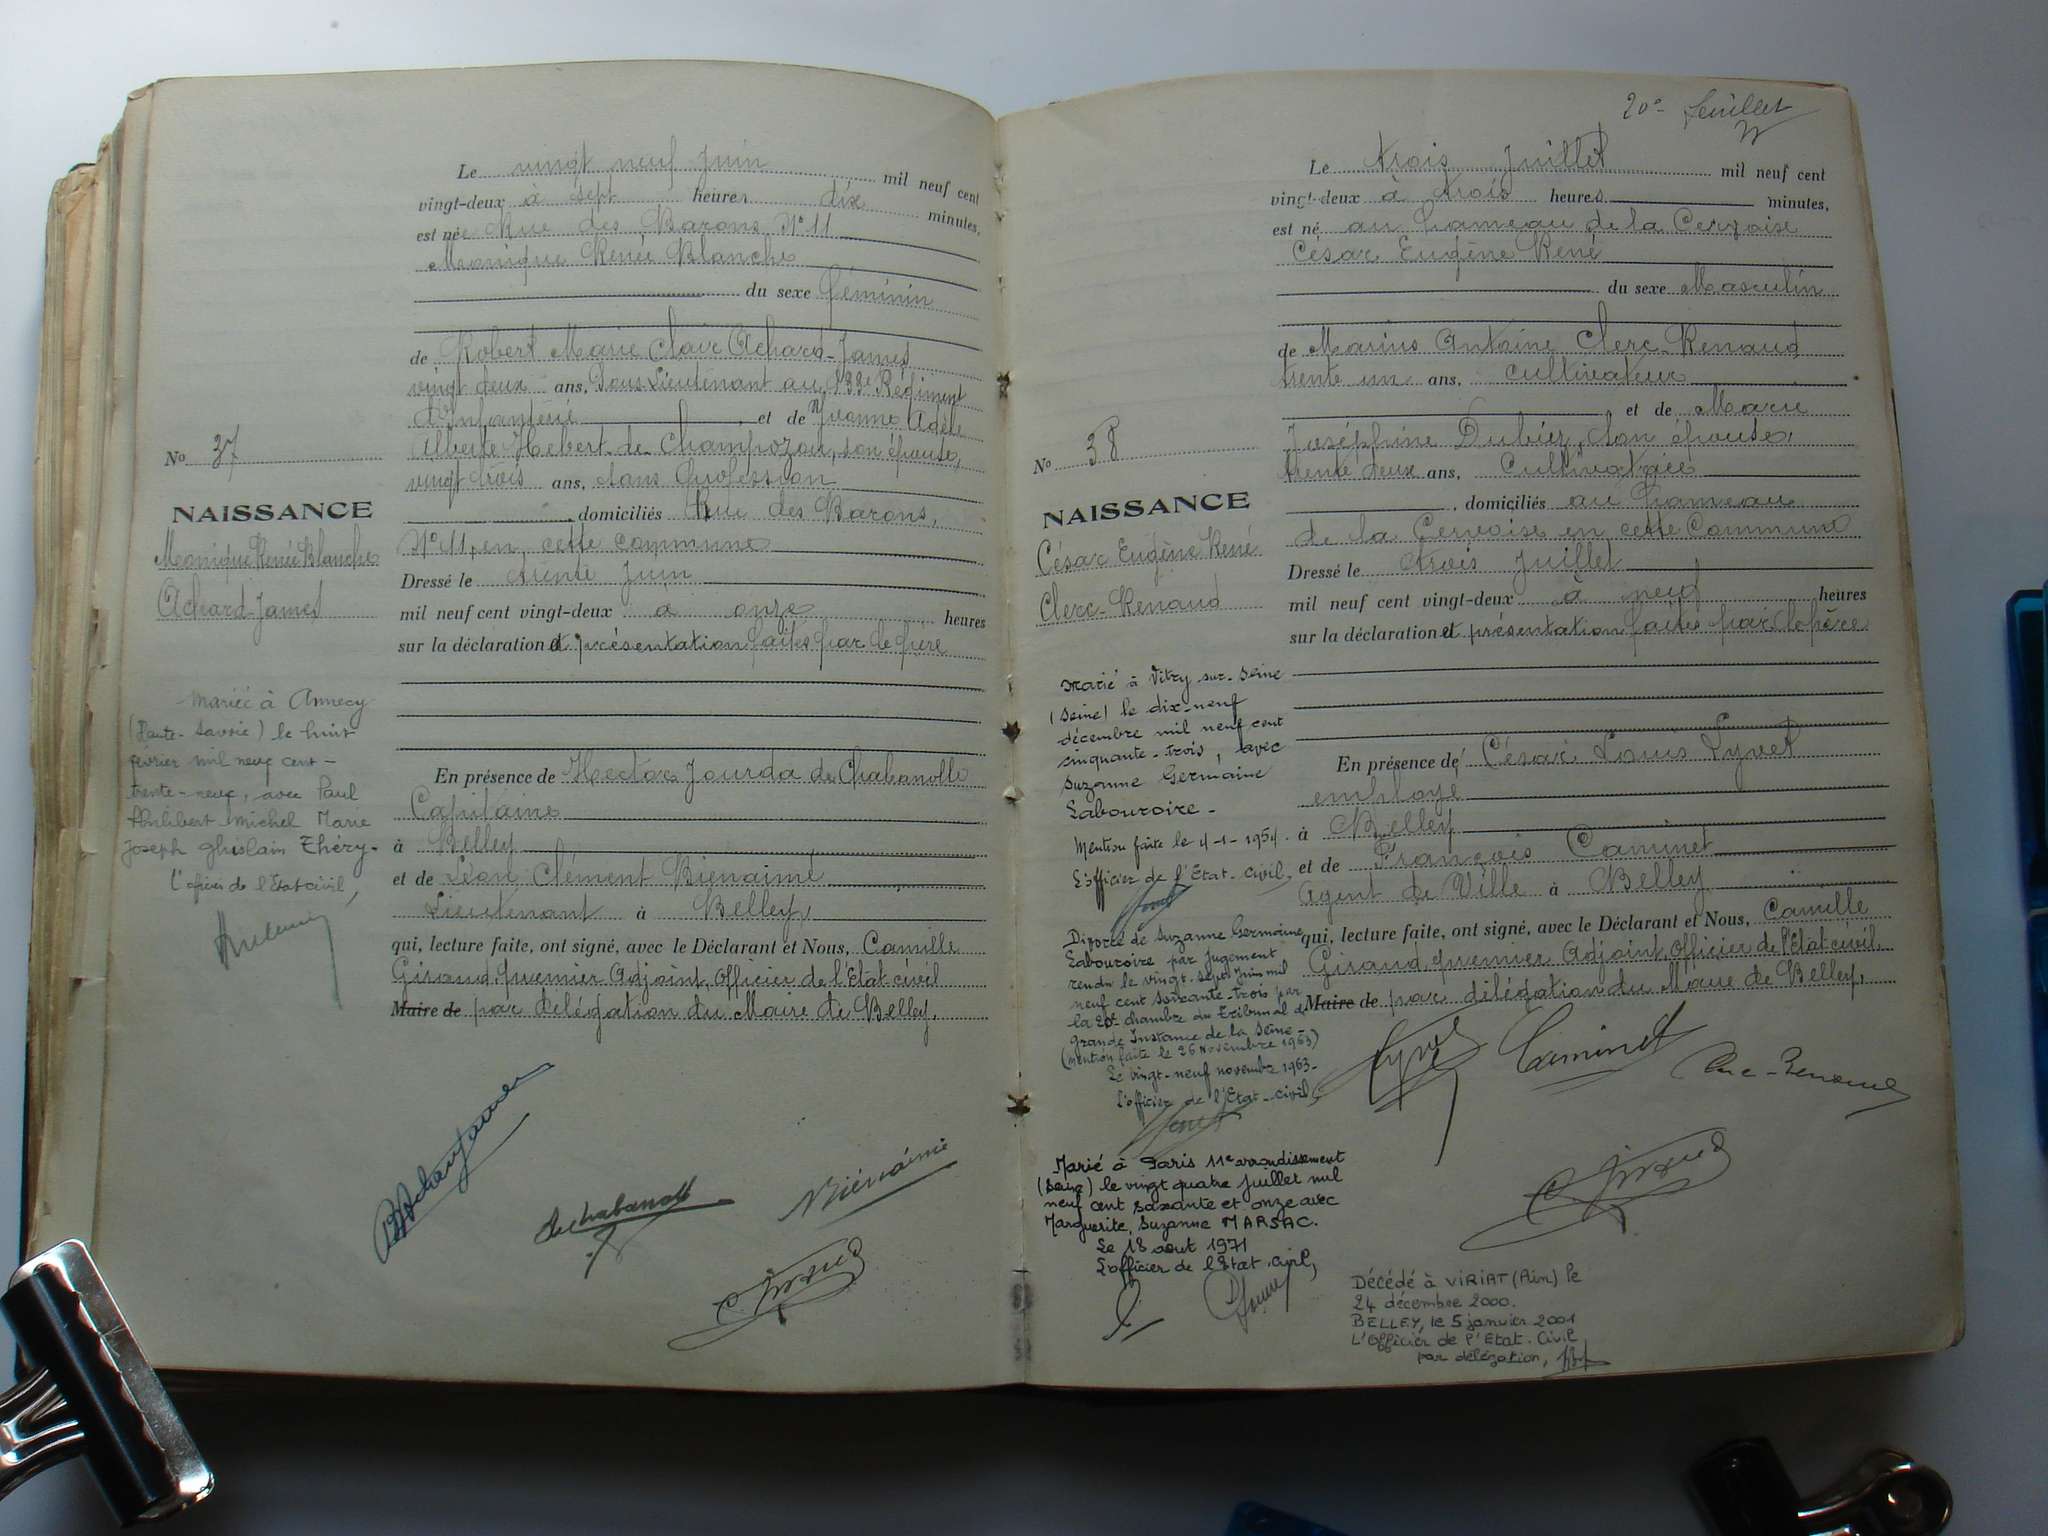 Le vingt neuf Juin mil neuf cent
vingt-deux à sept heures dix minutes,
est née Rue des Barons N° 11
Monique Renée Blanche
du sexe féminin
de Robert Marie Clair Achard-James
vingt deux ans, Sous-Lieutenant au 133e Régiment
d'Infanterie et de Yvonne Adèle
Alberte Hebert de Champozou, son épouse,
vingt trois ans, sans profession
, domiciliés Rue des Barons,
N° 11, en cette commune
Dressé le trente Juin
mil neuf cent vingt-deux à onze heures
sur la déclaration et présentation faites par le père
En présence de Hector Jourda de Chabanolle
Capitaine
à Belley
et de Léon Clément Bienaimé
Lieutenant à Belley,
qui, lecture faite, ont signé, avec le Déclarant et Nous, Camille
Giraud, premier Adjoint, Officier de l'Etat-civil
Maire de par délégation du Maire de Belley.
No 37
NAISSANCE
Monique Renée Blanche
Achard-James
Mariée à Annecy
(Haute-Savoie) le huit
février mil neuf cent-
trente-neuf, avec Paul
Philibert Michel Marie
Joseph Ghislain Théry-
L'officier de l'Etat civil,
de Chabanolle
Bienaimé
C Giraud
20e feuillet
Le trois Juillet mil neuf cent
vingt-deux à trois heures minutes,
est né au hameau de la Cervoise
César Eugène René
du sexe Masculin
de Marius Antoine Clerc-Renaud
trente un ans, cultivateur
et de Marie
Joséphine Dubiez, son épouse,
trente deux ans, Cultivatrice
, domiciliés au hameau
de la Cervoise en cette Commune
Dressé le trois Juillet
mil neuf cent vingt-deux à neuf heures
sur la déclaration et présentation faites par le père
En présence de César Louis Lyvet
employé
à Belley
et de François Caminet
Agent de Ville à Belley
qui, lecture faite, ont signé, avec le Déclarant et Nous, Camille
Giraud, premier Adjoint, Officier de l'Etat-civil
Maire de par délégation du Maire de Belley,
No 38
NAISSANCE
César Eugène René
Clerc-Renaud
Marié à Vitry-sur-Seine
(Seine) le dix-neuf
décembre mil neuf cent
cinquante-trois, avec
Suzanne Germaine
Labouroire-
Mention faite le 4-1-1954.
L'officier de l'Etat-civil,
Divorcé de Suzanne Germaine
Labouroire par jugement
rendu le vingt-sept Juin mil
neuf cent soixante-trois par
la 20e chambre du Tribunal de
Grande Instance de la Seine-
(mention faite le 26 Novembre 1963)
Le vingt-neuf novembre 1963-
L'officier de l'Etat-civil,
Marié à Paris 11e arrondissement
(Seine) le vingt quatre juillet mil
neuf cent soixante et onze avec
Marguerite, Suzanne MARSAC.
Le 18 aout 1971
L'officier de l'Etat civil,
Lyvet Caminet Clerc-Renaud
C Giraud
Décédé à VIRIAT (Ain) le
24 décembre 2000.
BELLEY, le 5 janvier 2001
L'Officier de l'Etat-Civil
par délégation,